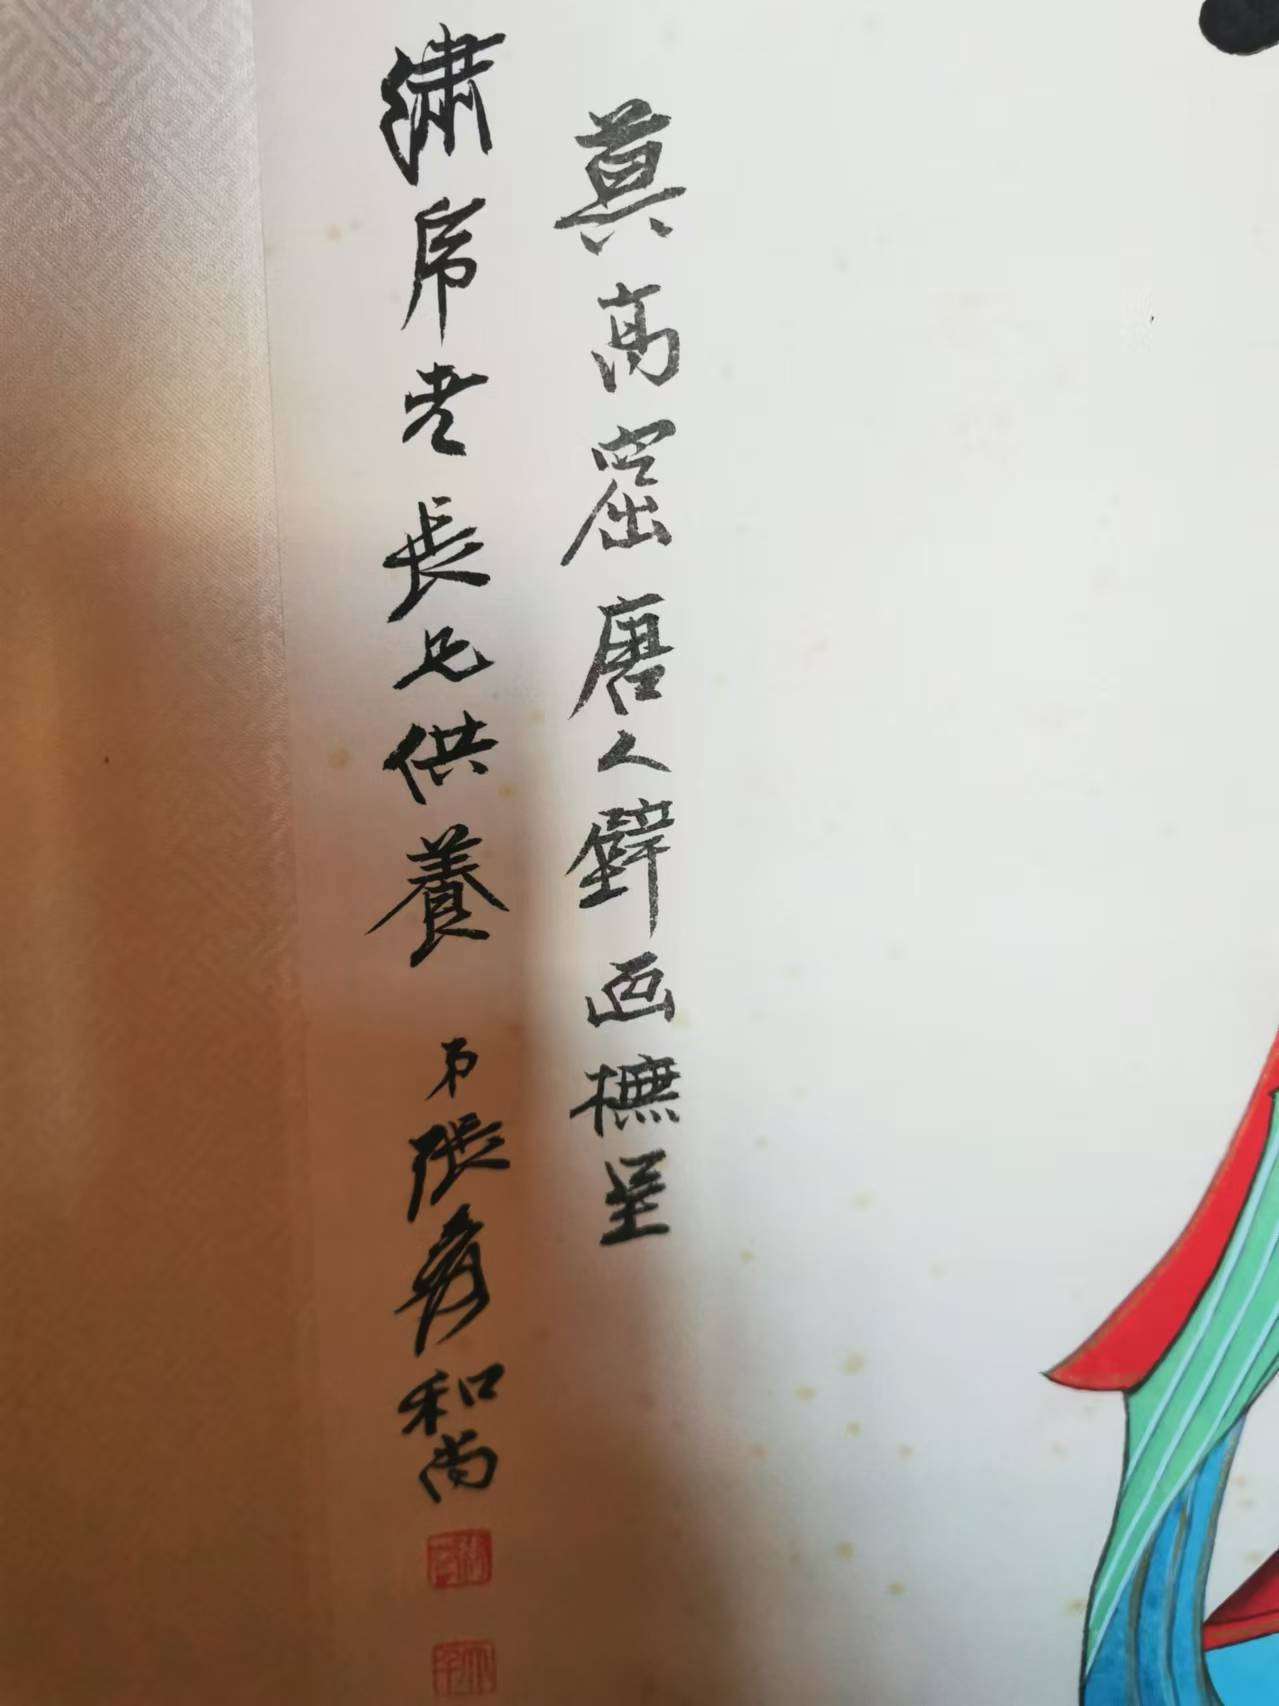 莫高窟唐人壁画橅呈
繡虎老長兄供養　弟張爰和尚